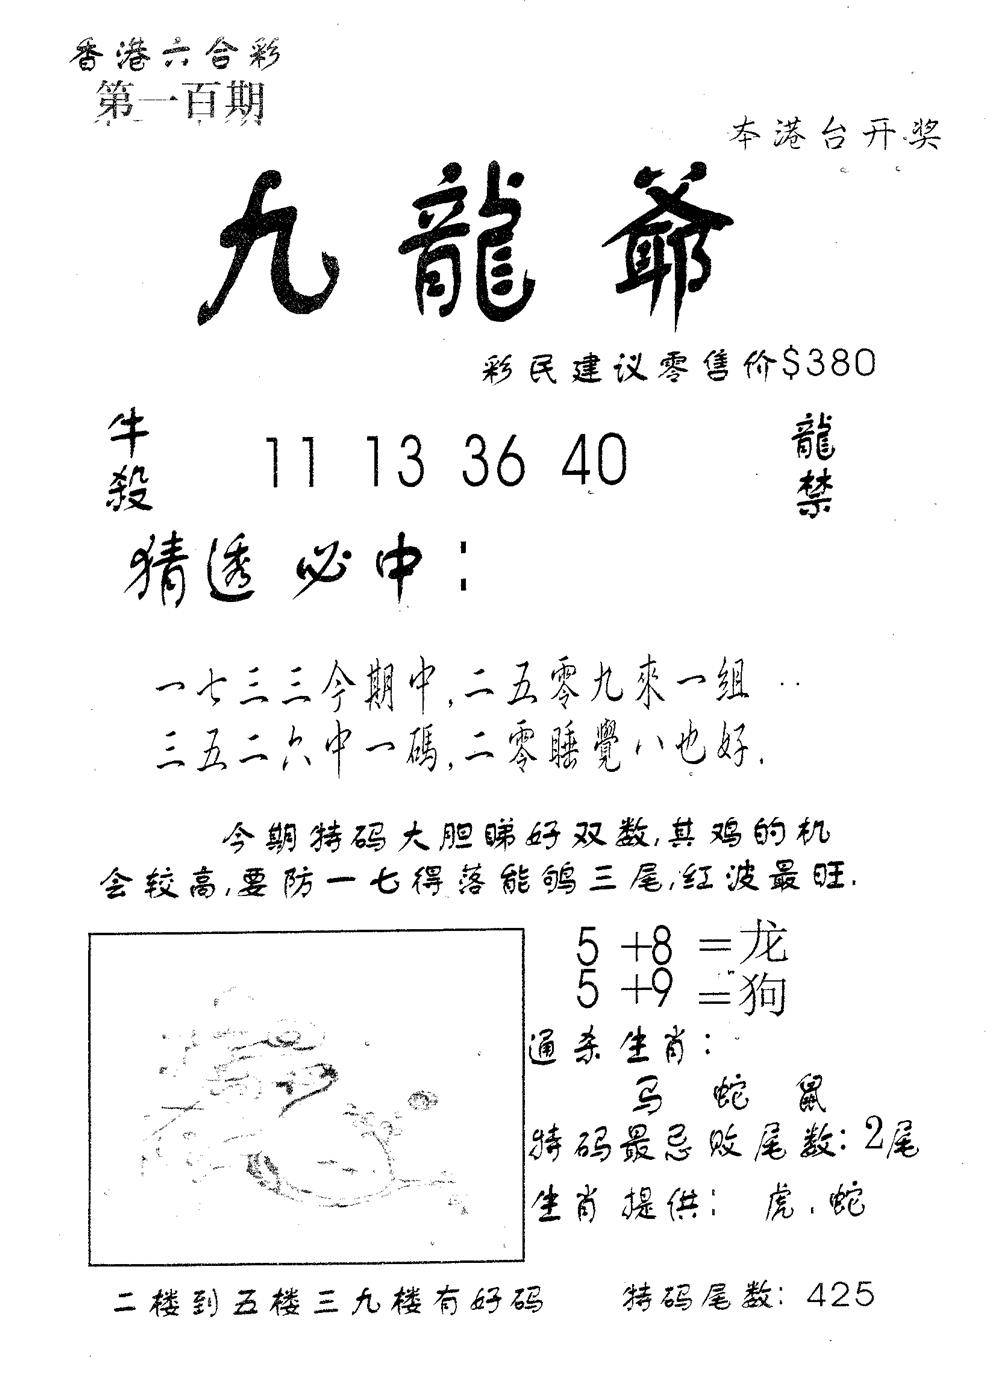 香港六合彩
第一百期
本港台开奖
九龍爺
彩民建议零售价$380
牛殺
11 13 36 40
龍禁
猜透必中：
一七三三今期中,二五零九來一組
三五二六中一碼,二零睡覺八也好.
今期特码大胆睇好双数,其鸡的机
会较高,要防一七得落能鸲三尾,红波最旺.
5+8=龙
5+9=狗
通杀生肖：
马 蛇 鼠
特码最忌败尾数：2尾
生肖提供： 虎.蛇
二楼到五楼三九楼有好码
特码尾数：425